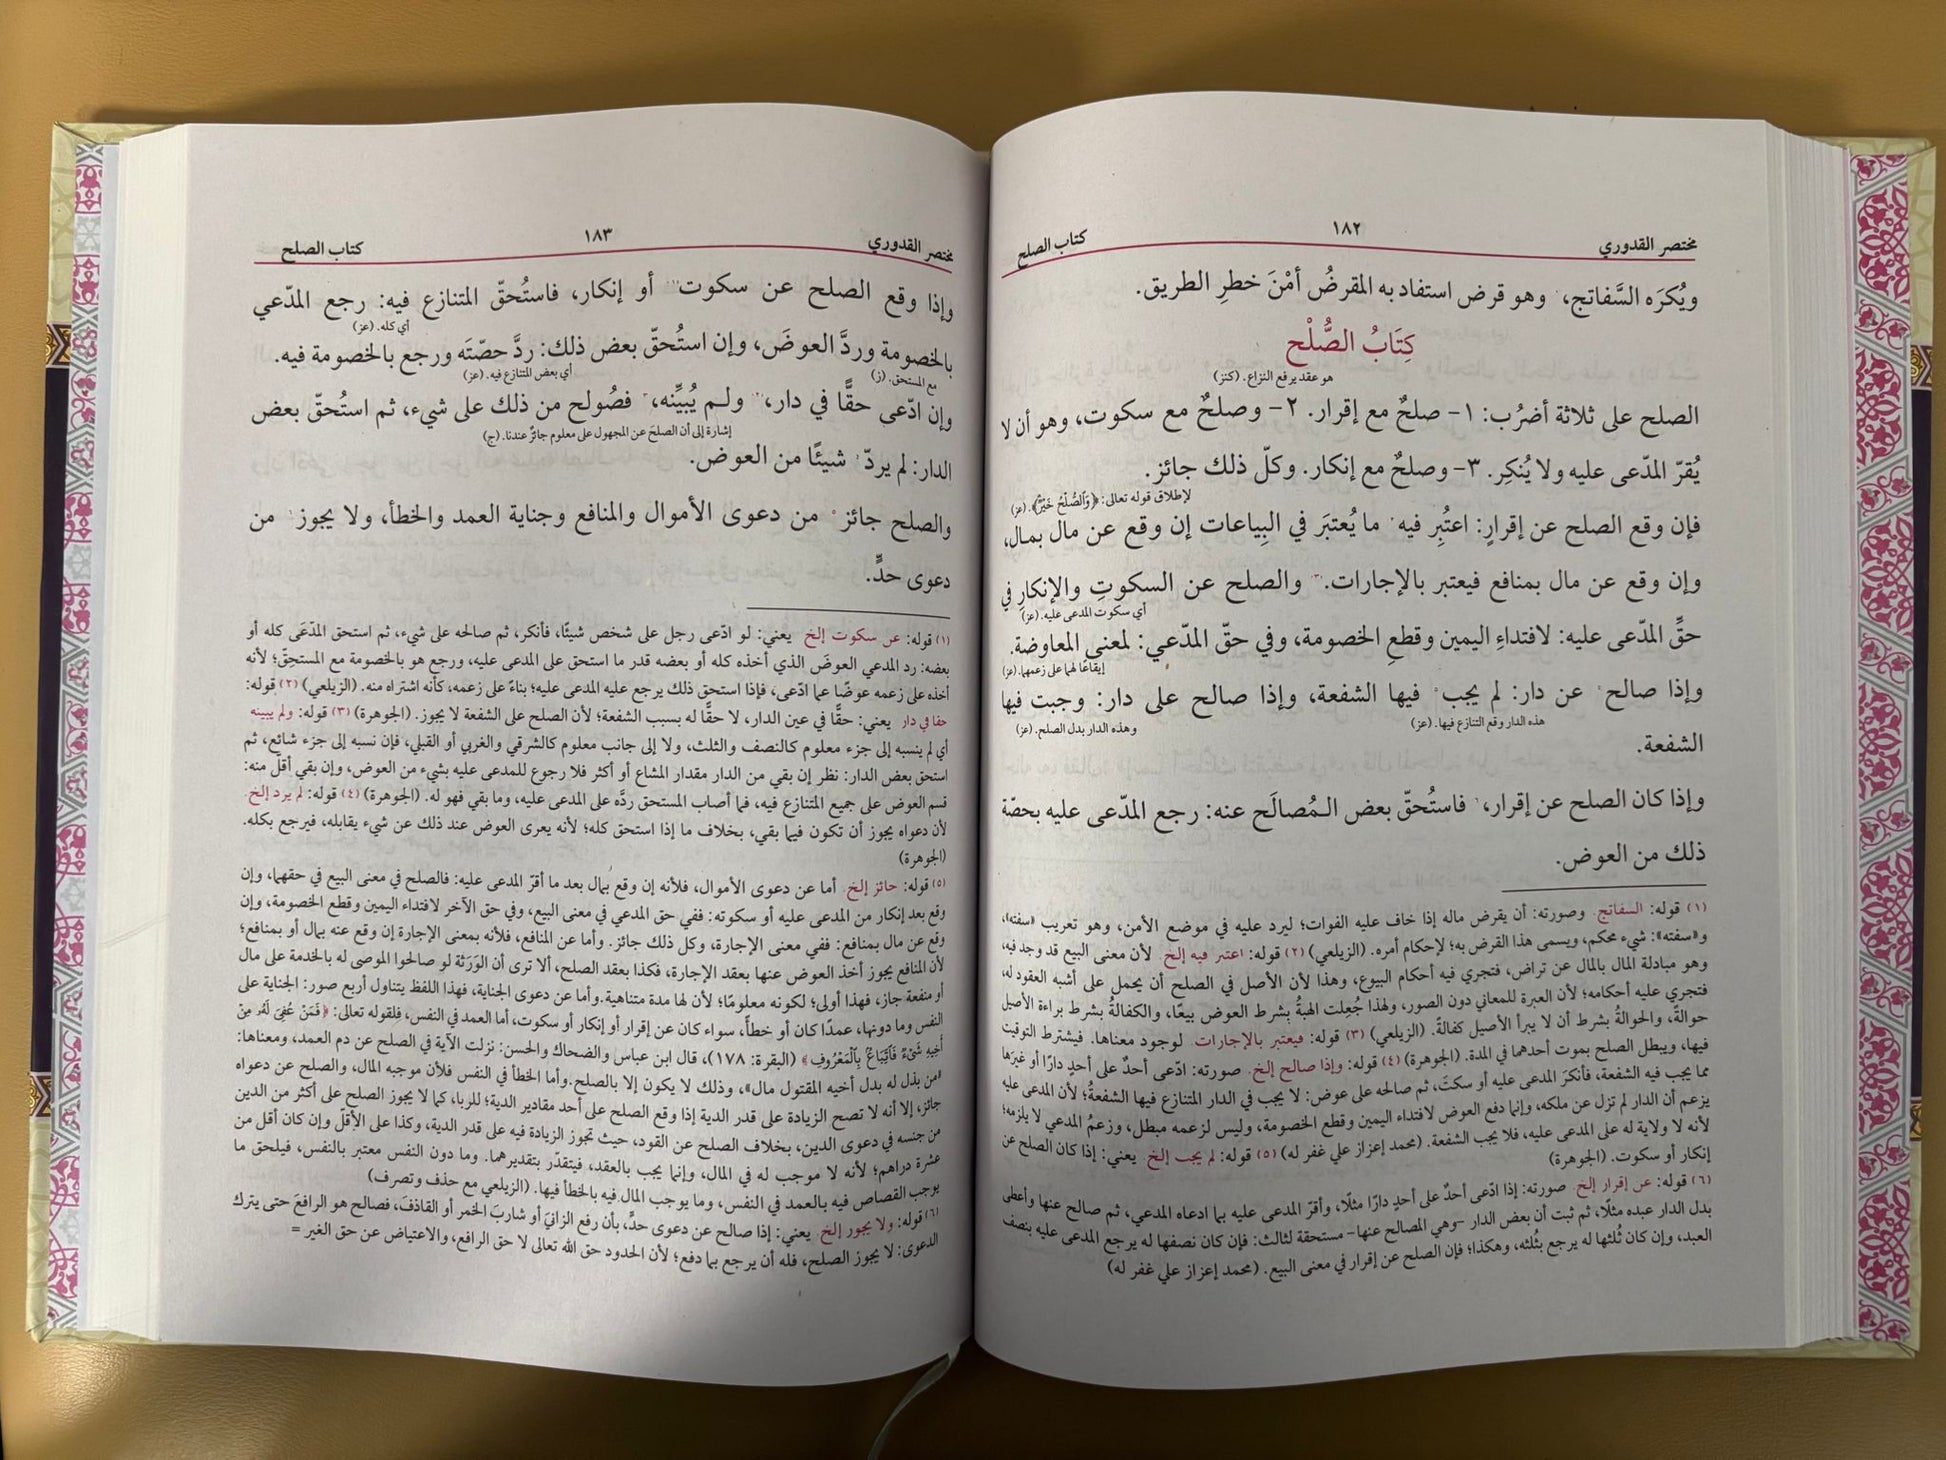 مختصر القدوري ١٨٢ كتاب الصلح
ويُكرَه السَّفاتج، وهو قرض استفاد به المقرضُ أمْنَ خطرِ الطريق.
كِتَابُ الصُّلْح
هو عقد يرفع النزاع. (كنز)
الصلح على ثلاثة أضرُب: ١- صلحٌ مع إقرار. ٢- وصلحٌ مع سكوت، وهو أن لا
يُقرّ المدّعى عليه ولا يُنكِر. ٣- وصلحٌ مع إنكار. وكلّ ذلك جائز.
لإطلاق قوله تعالى: ﴿وَٱلصُّلْحُ خَيْرٌ﴾. (عز)
فإن وقع الصلح عن إقرارٍ: اعتُبِر فيه ما يُعتبَر في البِياعات إن وقع عن مال بمـال،
وإن وقع عن مال بمنافع فيعتبر بالإجارات.(٣) والصلح عن السكوتِ والإنكارِ في
أي سكوت المدعى عليه. (عز)
حقِّ المدّعى عليه: لافتداءِ اليمين وقطعِ الخصومة، وفي حقّ المدّعي: لمعنى المعاوضة.
إيقاعًا لهما على زعمهما. (عز)
وإذا صالح عن دار: لم يجب فيها الشفعة، وإذا صالح على دار: وجبت فيها
هذه الدار وقع التنازع فيها. (عز) وهذه الدار بدل الصلح. (عز)
الشفعة.
وإذا كان الصلح عن إقرار، فاستُحقّ بعض الـمُصالَح عنه: رجع المدّعى عليه بحصّة
ذلك من العوض.
(١) قوله: السفاتج. وصورته: أن يقرض ماله إذا خاف عليه الفوات؛ ليرد عليه في موضع الأمن، وهو تعريب «سفته»،
و«سفته»: شيء محكم، ويسمى هذا القرض به؛ لإحكام أمره. (الزيلعي) (٢) قوله: اعتبر فيه إلخ. لأن معنى البيع قد وجد فيه،
وهو مبادلة المال بالمال عن تراض، فتجري فيه أحكام البيوع، وهذا لأن الأصل في الصلح أن يحمل على أشبه العقود له،
فتجري عليه أحكامه؛ لأن العبرة للمعاني دون الصور، ولهذا جُعِلت الهبةُ بشرط العوض بيعًا، والكفالةُ بشرط براءة الأصيل
حوالةً، والحوالةُ بشرط أن لا يبرأ الأصيل كفالةً. (الزيلعي) (٣) قوله: فيعتبر بالإجارات. لوجود معناها. فيشترط التوقيت
فيها، ويبطل الصلح بموت أحدهما في المدة. (الجوهرة) (٤) قوله: وإذا صالح إلخ. صورته: ادّعى أحدٌ على أحدٍ دارًا أو غيرَها
مما يجب فيه الشفعة، فأنكرَ المدعى عليه أو سكتَ، ثم صالحه على عوض: لا يجب في الدار المتنازع فيها الشفعةُ؛ لأن المدعى عليه
يزعم أن الدار لم تزل عن ملكه، وإنما دفع العوض لافتداء اليمين وقطع الخصومة، وليس لزعمه مبطل، وزعمُ المدعي لا يلزمه؛
لأنه لا ولاية له على المدعى عليه، فلا يجب الشفعة. (محمد إعزاز علي غفر له) (٥) قوله: لم يجب إلخ. يعني: إذا كان الصلح عن
إنكار أو سكوت. (الجوهرة)
(٦) قوله: عن إقرار إلخ. صورته: إذا ادّعى أحدٌ على أحدٍ دارًا مثلًا، وأقرّ المدعى عليه بما ادعاه المدعي، ثم صالح عنها وأعطى
بدل الدار عبده مثلًا، ثم ثبت أن بعض الدار -وهي المصالح عنها- مستحقة لثالث: فإن كان نصفها له يرجع المدعى عليه بنصف
العبد، وإن كان ثُلثها له يرجع بثُلثه، وهكذا؛ فإن الصلح عن إقرار في معنى البيع. (محمد إعزاز علي غفر له)
مختصر القدوري ١٨٣ كتاب الصلح
وإذا وقع الصلح عن سكوت أو إنكار، فاستُحقّ المتنازع فيه: رجع المدّعي
أي كله. (عز)
بالخصومة وردَّ العوضَ، وإن استُحقّ بعض ذلك: ردَّ حصّتَه ورجع بالخصومة فيه.
مع المستحق. (ز) أي بعض المتنازع فيه. (عز)
وإن ادّعى حقًّا في دار، ولـم يُبيِّنه، فصُولح من ذلك على شيء، ثم استُحقّ بعض
إشارة إلى أن الصلحَ عن المجهول على معلوم جائزٌ عندنا. (ج)
الدار: لم يردّ شيئًا من العوض.
والصلح جائز من دعوى الأموال والمنافع وجناية العمد والخطأ، ولا يجوز من
دعوى حدٍّ.
(١) قوله: عن سكوت إلخ. يعني: لو ادّعى رجل على شخص شيئًا، فأنكر، ثم صالحه على شيء، ثم استحق المدّعَى كله أو
بعضه: رد المدعي العوضَ الذي أخذه كله أو بعضه قدر ما استحق على المدعى عليه، ورجع هو بالخصومة مع المستحِقّ؛ لأنه
أخذه على زعمه عوضًا عما ادّعى، فإذا استحق ذلك يرجع عليه المدعى عليه؛ بناءً على زعمه، كأنه اشتراه منه. (الزيلعي) (٢) قوله:
حقا في دار. يعني: حقًّا في عين الدار، لا حقًّا له بسبب الشفعة؛ لأن الصلح على الشفعة لا يجوز. (الجوهرة) (٣) قوله: ولم يبينه
أي لم ينسبه إلى جزء معلوم كالنصف والثلث، ولا إلى جانب معلوم كالشرقي والغربي أو القبلي، فإن نسبه إلى جزء شائع، ثم
استحق بعض الدار: نظر إن بقي من الدار مقدار المشاع أو أكثر فلا رجوع للمدعى عليه بشيء من العوض، وإن بقي أقلّ منه:
قسم العوض على جميع المتنازع فيه، فما أصاب المستحق ردَّه على المدعى عليه، وما بقي فهو له. (الجوهرة) (٤) قوله: لم يرد إلخ.
لأن دعواه يجوز أن تكون فيما بقي، بخلاف ما إذا استحق كله؛ لأنه يعرى العوض عند ذلك عن شيء يقابله، فيرجع بكله.
(الجوهرة)
(٥) قوله: جائز إلخ. أما عن دعوى الأموال، فلأنه إن وقع بمال بعد ما أقرّ المدعى عليه: فالصلح في معنى البيع في حقهما، وإن
وقع بعد إنكار من المدعى عليه أو سكوته: ففي حق المدعي في معنى البيع، وفي حق الآخر لافتداء اليمين وقطع الخصومة، وإن
وقع عن مال بمنافع: ففي معنى الإجارة، وكل ذلك جائز. وأما عن المنافع، فلأنه بمعنى الإجارة إن وقع عنه بمال أو بمنافع؛
لأن المنافع يجوز أخذ العوض عنها بعقد الإجارة، فكذا بعقد الصلح، ألا ترى أن الوَرَثة لو صالحوا الموصى له بالخدمة على مال
أو منفعة جاز، فهذا أولى؛ لكونه معلومًا؛ لأن لها مدة متناهية. وأما عن دعوى الجناية، فهذا اللفظ يتناول أربع صور: الجناية على
النفس وما دونها، عمدًا كان أو خطأً، سواء كان عن إقرار أو إنكار أو سكوت، أما العمد في النفس، فلقوله تعالى: ﴿فَمَنْ عُفِىَ لَهُۥ مِنْ
أَخِيهِ شَىْءٌ فَٱتِّبَاعٌۢ بِٱلْمَعْرُوفِ﴾ (البقرة: ١٧٨)، قال ابن عباس والضحاك والحسن: نزلت الآية في الصلح عن دم العمد، ومعناها:
«من بذل له بدل أخيه المقتول مال»، وذلك لا يكون إلا بالصلح. وأما الخطأ في النفس فلأن موجبه المال، والصلح عن دعواه
جائز، إلا أنه لا تصح الزيادة على قدر الدية إذا وقع الصلح على أحد مقادير الدية؛ للربا، كما لا يجوز الصلح على أكثر من الدين
من جنسه في دعوى الدين، بخلاف الصلح عن القود، حيث تجوز الزيادة فيه على قدر الدية، وكذا على الأقلّ وإن كان أقل من
عشرة دراهم؛ لأنه لا موجب له في المال، وإنما يجب بالعقد، فيتقدّر بتقديرهما. وما دون النفس معتبر بالنفس، فيلحق ما
يوجب القصاص فيه بالعمد في النفس، وما يوجب المال فيه بالخطأ فيها. (الزيلعي مع حذف وتصرف)
(٦) قوله: ولا يجوز إلخ. يعني: إذا صالح عن دعوى حدٍّ، بأن رفع الزانيَ أو شاربَ الخمر أو القاذفَ، فصالح هو الرافعَ حتى يترك
الدعوى: لا يجوز الصلح، فله أن يرجع بما دفع؛ لأن الحدود حق الله تعالى لا حق الرافع، والاعتياض عن حق الغير =